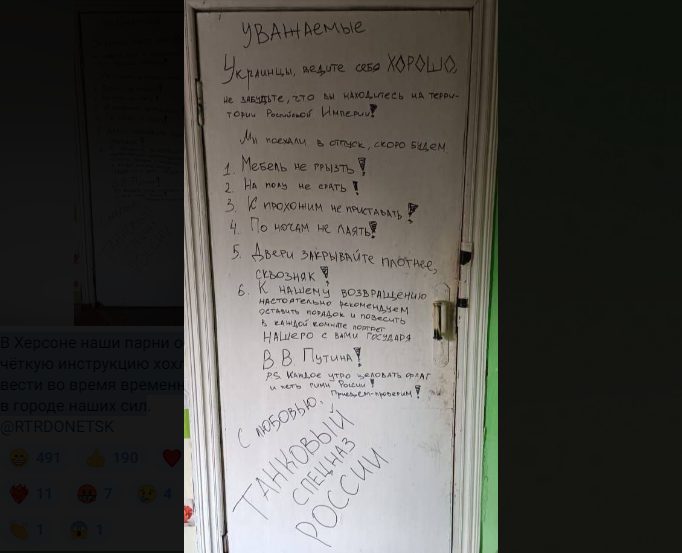 УВАЖАЕМЫЕ
УКРАИНЦЫ, ВЕДИТЕ СЕБЯ ХОРОШО,
НЕ ЗАБУДЬТЕ, ЧТО ВЫ НАХОДИТЕСЬ НА ТЕРРИ-
ТОРИИ РОССИЙСКОЙ ИМПЕРИИ!
МЫ ПОЕХАЛИ В ОТПУСК, СКОРО БУДЕМ
1. МЕБЕЛЬ НЕ ГРЫЗТЬ!
2. НА ПОЛУ НЕ СРАТЬ!
3. К ПРОХОЖИМ НЕ ПРИСТАВАТЬ!
4. ПО НОЧАМ НЕ ЛАЯТЬ!
5. ДВЕРИ ЗАКРЫВАЙТЕ ПЛОТНЕЕ,
СКВОЗНЯК!
6. К НАШЕМУ ВОЗВРАЩЕНИЮ
НАСТОЯТЕЛЬНО РЕКОМЕНДУЕМ
ОСТАВИТЬ ПОРЯДОК И ПОВЕСИТЬ
В КАЖДОЙ КОМНАТЕ ПОРТРЕТ
НАШЕГО С ВАМИ ГОСУДАРЯ
В.В. ПУТИНА!
PS КАЖДОЕ УТРО ЦЕЛОВАТЬ ФЛАГ
И ПЕТЬ ГИМН РОССИИ!
ПРИЕДЕМ-ПРОВЕРИМ!
С ЛЮБОВЬЮ,
ТАНКОВЫЙ
СПЕЦНАЗ
РОССИИ
В Херсоне наши парни о
чёткую инструкцию хохл
вести во время временн
в городе наших сил.
@RTRDONETSK
491 190
11 7 4
1 1